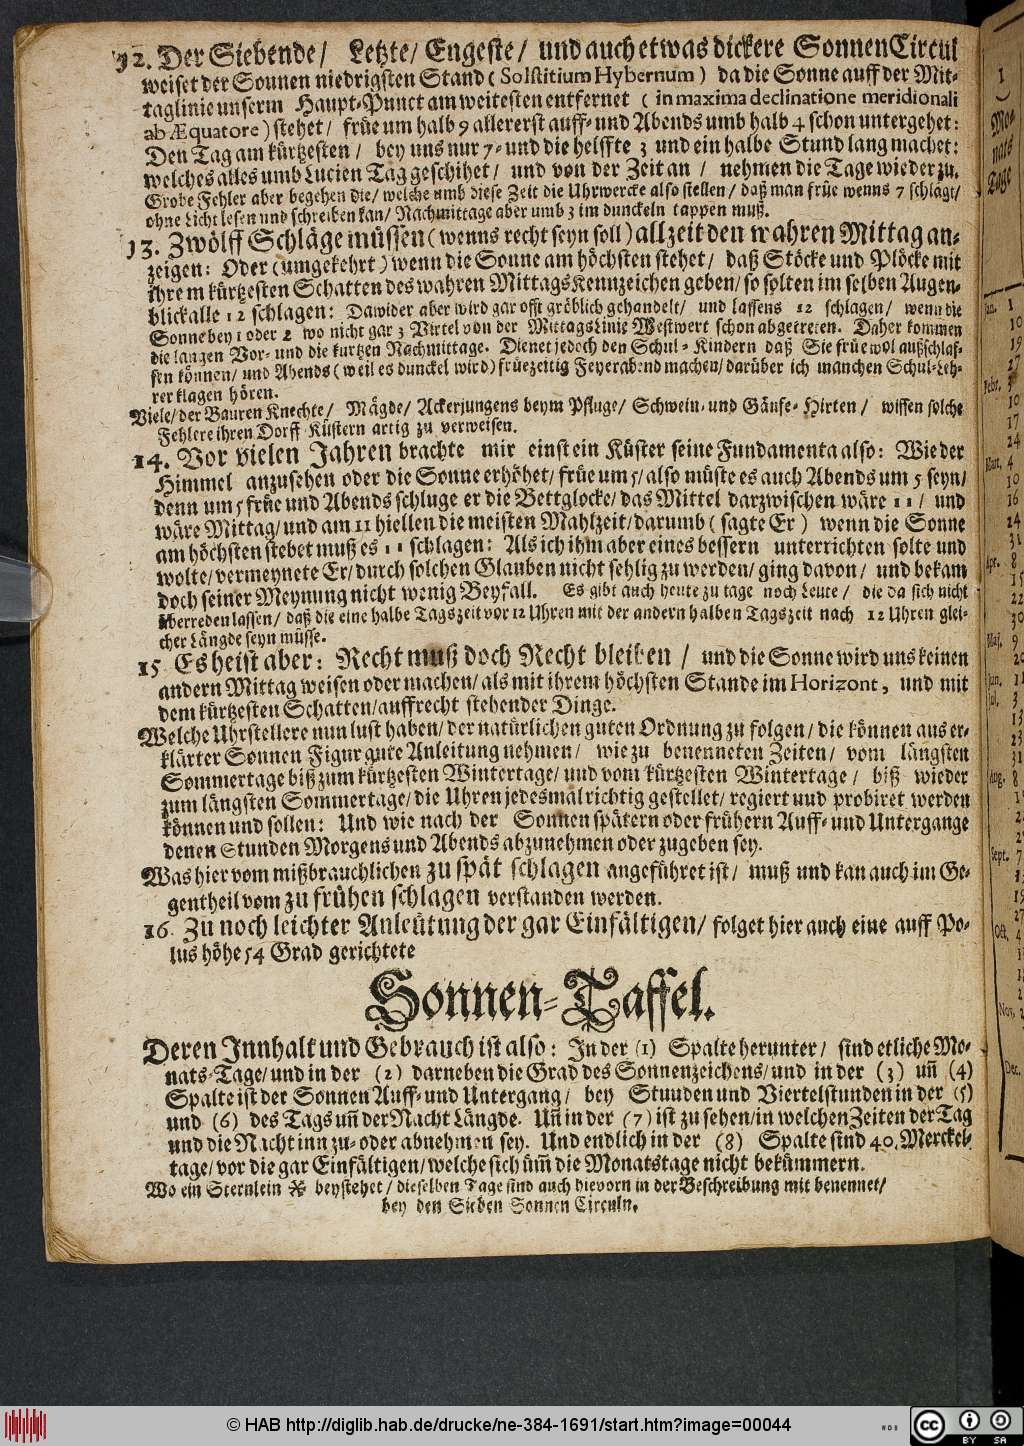 12. Der Siebende/ Letzte/ Engeste/ und auch etwas dickere Sonnen Circul
weiset der Sonnen niedrigsten Stand (Solstitium Hybernum) da die Sonne auff der Mit-
taglinie unserm Haupt-Punct am weitesten entfernet (in maxima declinatione meridionali
ab Æquatore) stehet/ früe um halb 9 allererst auff- und Abends umb halb 4 schon untergehet:
Den Tag am kürtzesten/ bey uns nur 7- und die helffte 3 und ein halbe Stund lang machet:
welches alles umb Lucien Tag geschihet/ und von der Zeit an/ nehmen die Tage wieder zu.
Grobe Fehler aber begehen die/ welche umb diese Zeit die Uhrwercke also stellen/ daß man früe wenns 7 schlägt/
ohne Licht lesen und schreiben kan/ Nachmittage aber umb 3 im dunckeln tappen muß.
13. Zwölff Schläge müssen (wenns recht seyn soll) allzeit den wahren Mittag an-
zeigen: Oder (umgekehrt) wenn die Sonne am höchsten stehet/ daß Stöcke und Plöcke mit
ihrem kürtzesten Schatten des wahren Mittags Kennzeichen geben/ so solten im selben Augen-
blick alle 12 schlagen: Dawider aber wird gar offt gröblich gehandelt/ und lassens 12 schlagen/ wenn die
Sonne bey 1 oder 2 wo nicht gar 3 Virtel von der Mittags Linie Westwert schon abgetreten. Daher kommen
die langen Vor- und die kurtzen Nachmittage. Dienet jedoch den Schul-Kindern daß Sie früe wol außschlaf-
fen können/ und Abends (weil es dunckel wird) früezeitig Feyerabend machen/ darüber ich manchen Schul-Leh-
rer klagen hören.
Viele/ der Bauren Knechte/ Mägde/ Ackerjungens beym Pfluge/ Schwein- und Gänse-Hirten/ wissen solche
Fehlere ihren Dorff Küstern artig zu verweisen.
14. Vor vielen Jahren brachte mir einst ein Küster seine Fundamenta also: Wie der
Himmel anzusehen oder die Sonne erhöhet/ früe um 5/ also müste es auch Abends um 5 seyn/
denn um 5 früe und Abends schluge er die Bettglocke/ das Mittel darzwischen wäre 11/ und
wäre Mittag/ und am 11 hiellen die meisten Mahlzeit/ darumb (sagte Er) wenn die Sonne
am höchsten stehet muß es 11 schlagen: Als ich ihm aber eines bessern unterrichten solte und
wolte/ vermeynete Er/ durch solchen Glauben nicht sehlig zu werden/ ging davon/ und bekam
doch seiner Meynung nicht wenig Beyfall. Es gibt auch heute zu tage noch Leute/ die da sich nicht
überreden lassen/ daß die eine halbe Tagszeit vor 12 Uhren mit der andern halben Tagszeit nach 12 Uhren glei-
cher Längde seyn müsse.
15. Es heist aber: Recht muß doch Recht bleiben/ und die Sonne wird uns keinen
andern Mittag weisen oder machen/ als mit ihrem höchsten Stande im Horizont, und mit
dem kürtzesten Schatten/ auffrecht stehender Dinge.
Welche Uhrstellere nun lust haben/ der natürlichen guten Ordnung zu folgen/ die können aus er-
klärter Sonnen Figur gute Anleitung nehmen/ wie zu benenneten Zeiten/ vom längsten
Sommertage biß zum kürtzesten Wintertage/ und vom kürtzesten Wintertage/ biß wieder
zum längsten Sommertage/ die Uhren jedesmal richtig gestellet/ regiert und probiret werden
können und sollen: Und wie nach der Sonnen spätern oder frühern Auff- und Untergange
denen Stunden Morgens und Abends abzunehmen oder zugeben sey.
Was hier vom mißbrauchlichen zu spät schlagen angeführet ist/ muß und kan auch im Ge-
gentheil vom zu frühen schlagen verstanden werden.
16. Zu noch leichter Anleütung der gar Einfältigen/ folget hier auch eine auff Po-
lus höhe 54 Grad gerichtete
Sonnen-Taffel.
Deren Innhalt und Gebrauch ist also: In der (1) Spalte herunter/ sind etliche Mo-
nats-Tage/ und in der (2) darneben die Grad des Sonnenzeichens/ und in der (3) uñ (4)
Spalte ist der Sonnen Auff- und Untergang/ bey Stunden und Viertelstunden in der (5)
und (6) des Tags uñ der Nacht Längde. Uñ in der (7) ist zu sehen/ in welchen Zeiten der Tag
und die Nacht inn zu- oder abnehmen sey. Und endlich in der (8) Spalte sind 40. Merckel-
tage/ vor die gar Einfältigen/ welche sich üm̃ die Monatstage nicht bekümmern.
Wo ein Sternlein ※ beystehet/ dieselben Tage sind auch hievorn in der Beschreibung mit benennet/
bey den Sieben Sonnen Circuln.
© HAB http://diglib.hab.de/drucke/ne-384-1691/start.htm?image=00044
cc BY SA